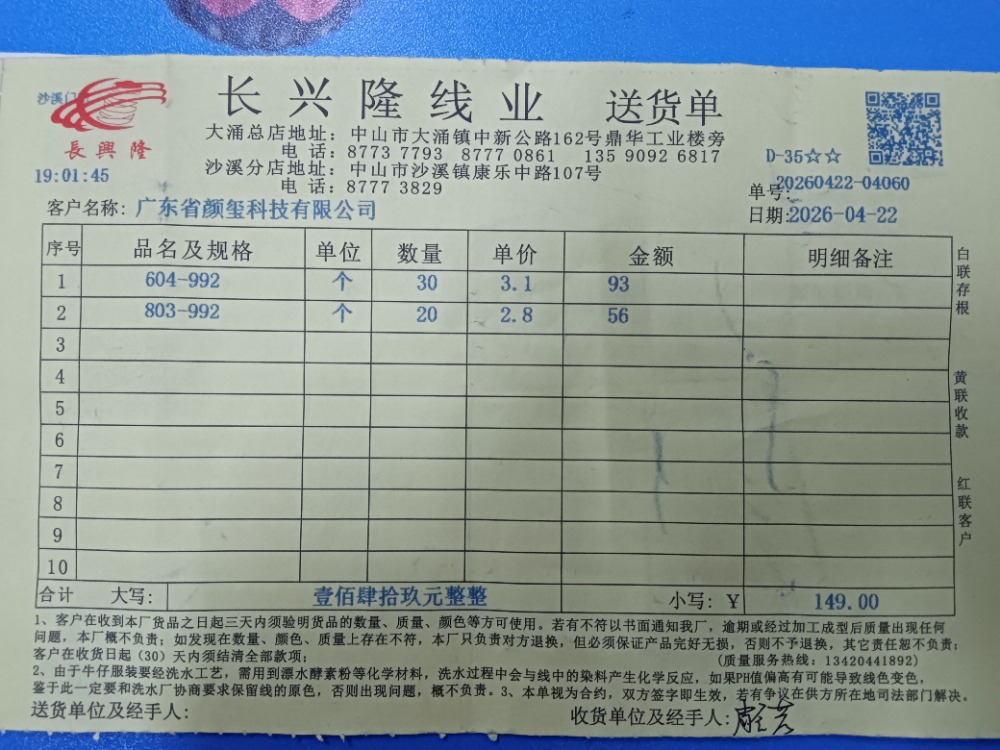 长兴隆线业 送货单
沙溪门
長興隆
大涌总店地址：中山市大涌镇中新公路162号鼎华工业楼旁
电 话：8773 7793 8777 0861 135 9092 6817
沙溪分店地址：中山市沙溪镇康乐中路107号
电 话：8777 3829
D-35☆☆
19:01:45
单号：20260422-04060
客户名称：广东省颜玺科技有限公司
日期：2026-04-22
序号 品名及规格 单位 数量 单价 金额 明细备注
1 604-992 个 30 3.1 93
2 803-992 个 20 2.8 56
3
4
5
6
7
8
9
10
合计 大写： 壹佰肆拾玖元整整 小写：￥ 149.00
白联存根
黄联收款
红联客户
1、客户在收到本厂货品之日起三天内须验明货品的数量、质量、颜色等方可使用。若有不符以书面通知我厂，逾期或经过加工成型后质量出现任何
问题，本厂概不负责；如发现在数量、颜色、质量上存在不符，本厂只负责对方退换，但必须保证产品完好无损，否则不予退换，其它责任恕不负责；
客户在收货日起（30）天内须结清全部款项； （质量服务热线：13420441892）
2、由于牛仔服装要经洗水工艺，需用到漂水酵素粉等化学材料，洗水过程中会与线中的染料产生化学反应，如果PH值偏高有可能导致线色变色，
鉴于此一定要和洗水厂协商要求保留线的原色，否则出现问题，概不负责。3、本单视为合约，双方签字即生效，若有争议在供方所在地司法部门解决。
送货单位及经手人： 收货单位及经手人：